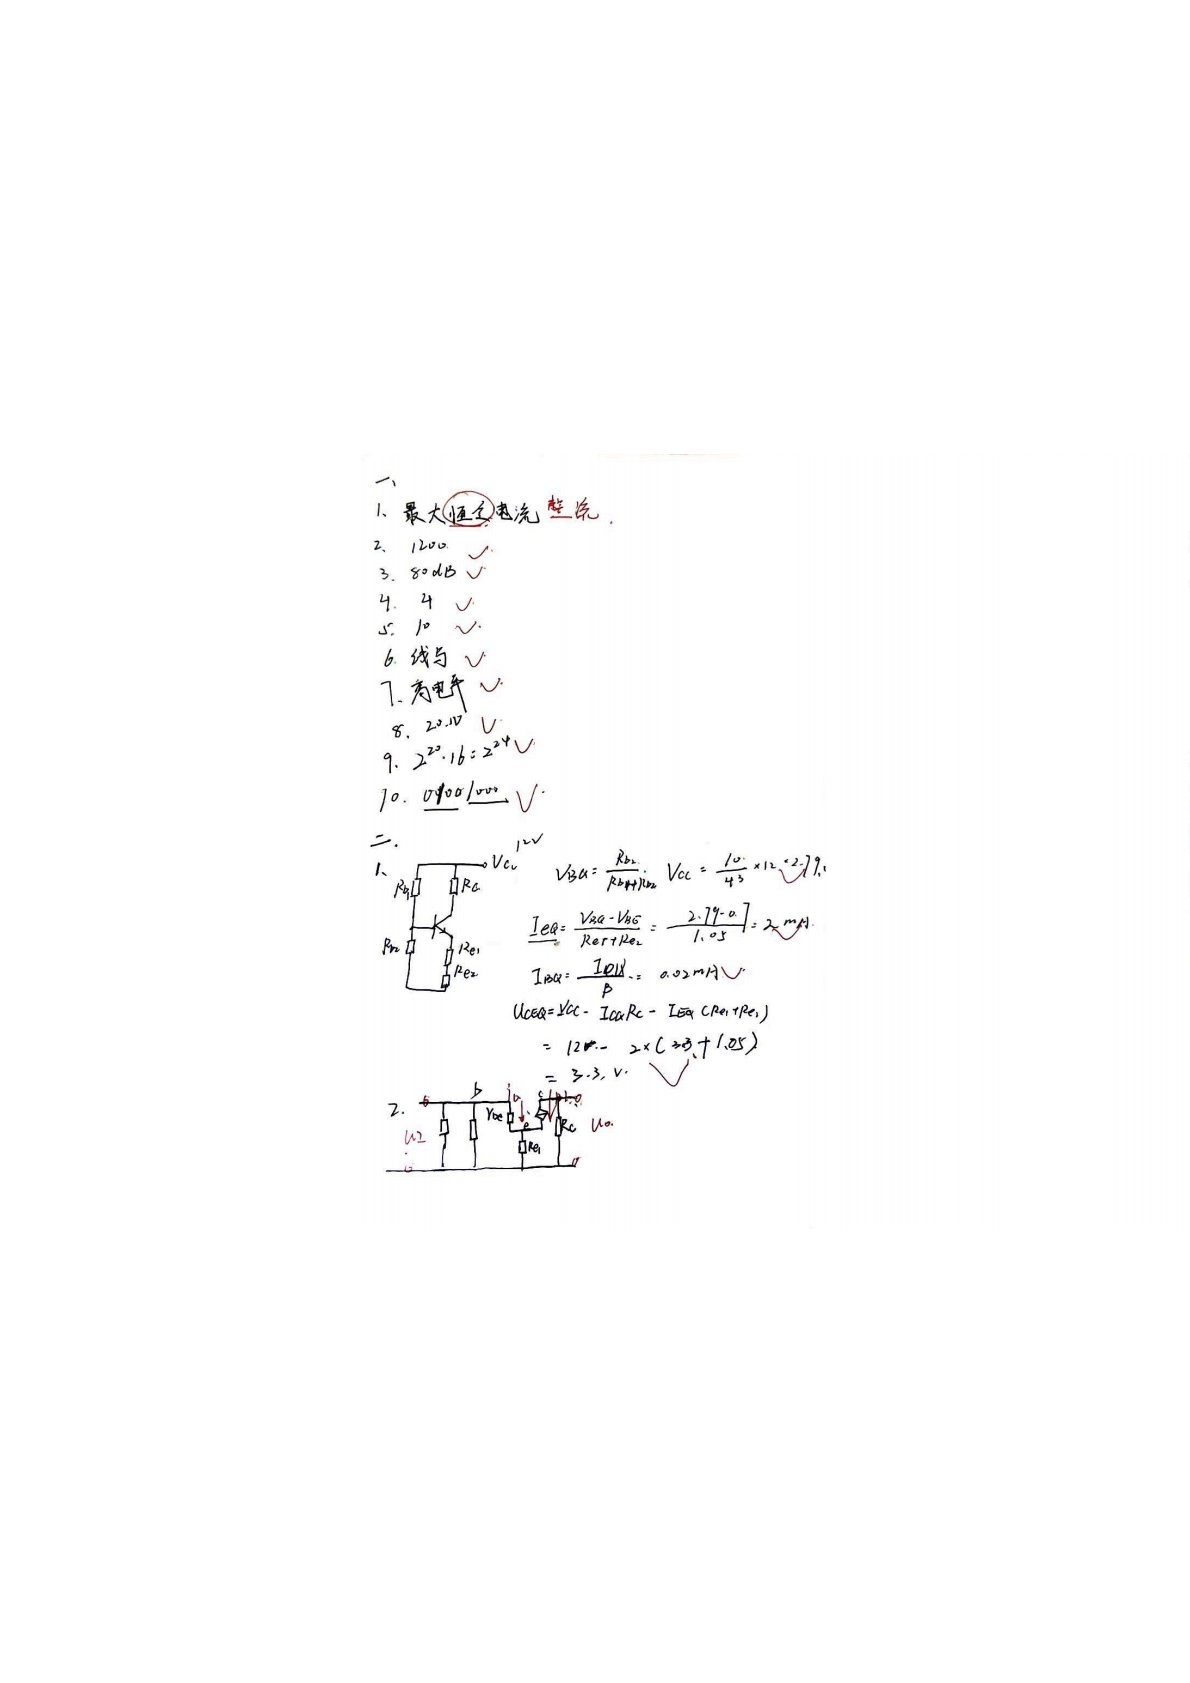 一、
1、最大恒定电流 整流
2、1200
3. 80dB
4. 4
5. 10
6. 线与
7、高电平
8. 20.10
9. 2²⁰·16=2²⁴
10. 01001000
二.
1、 Rb1 Rc Vcc 12V
Rb2 Re1 Re2
VBQ = Rb2/(Rb1+Rb2) Vcc = 10/43 ×12 = 2.79.
IeQ = (VBQ-VBE)/(Re1+Re2) = (2.79-0.7)/1.05 = 2mA.
IBQ = /β = 0.02mA
UCEQ=VCC- ICQRc - IEQ(Re1+Re2)
= 12 - 2×(3.3+1.05)
= 3.3.V.
2. b c
rbe e Rc Uo
Re1